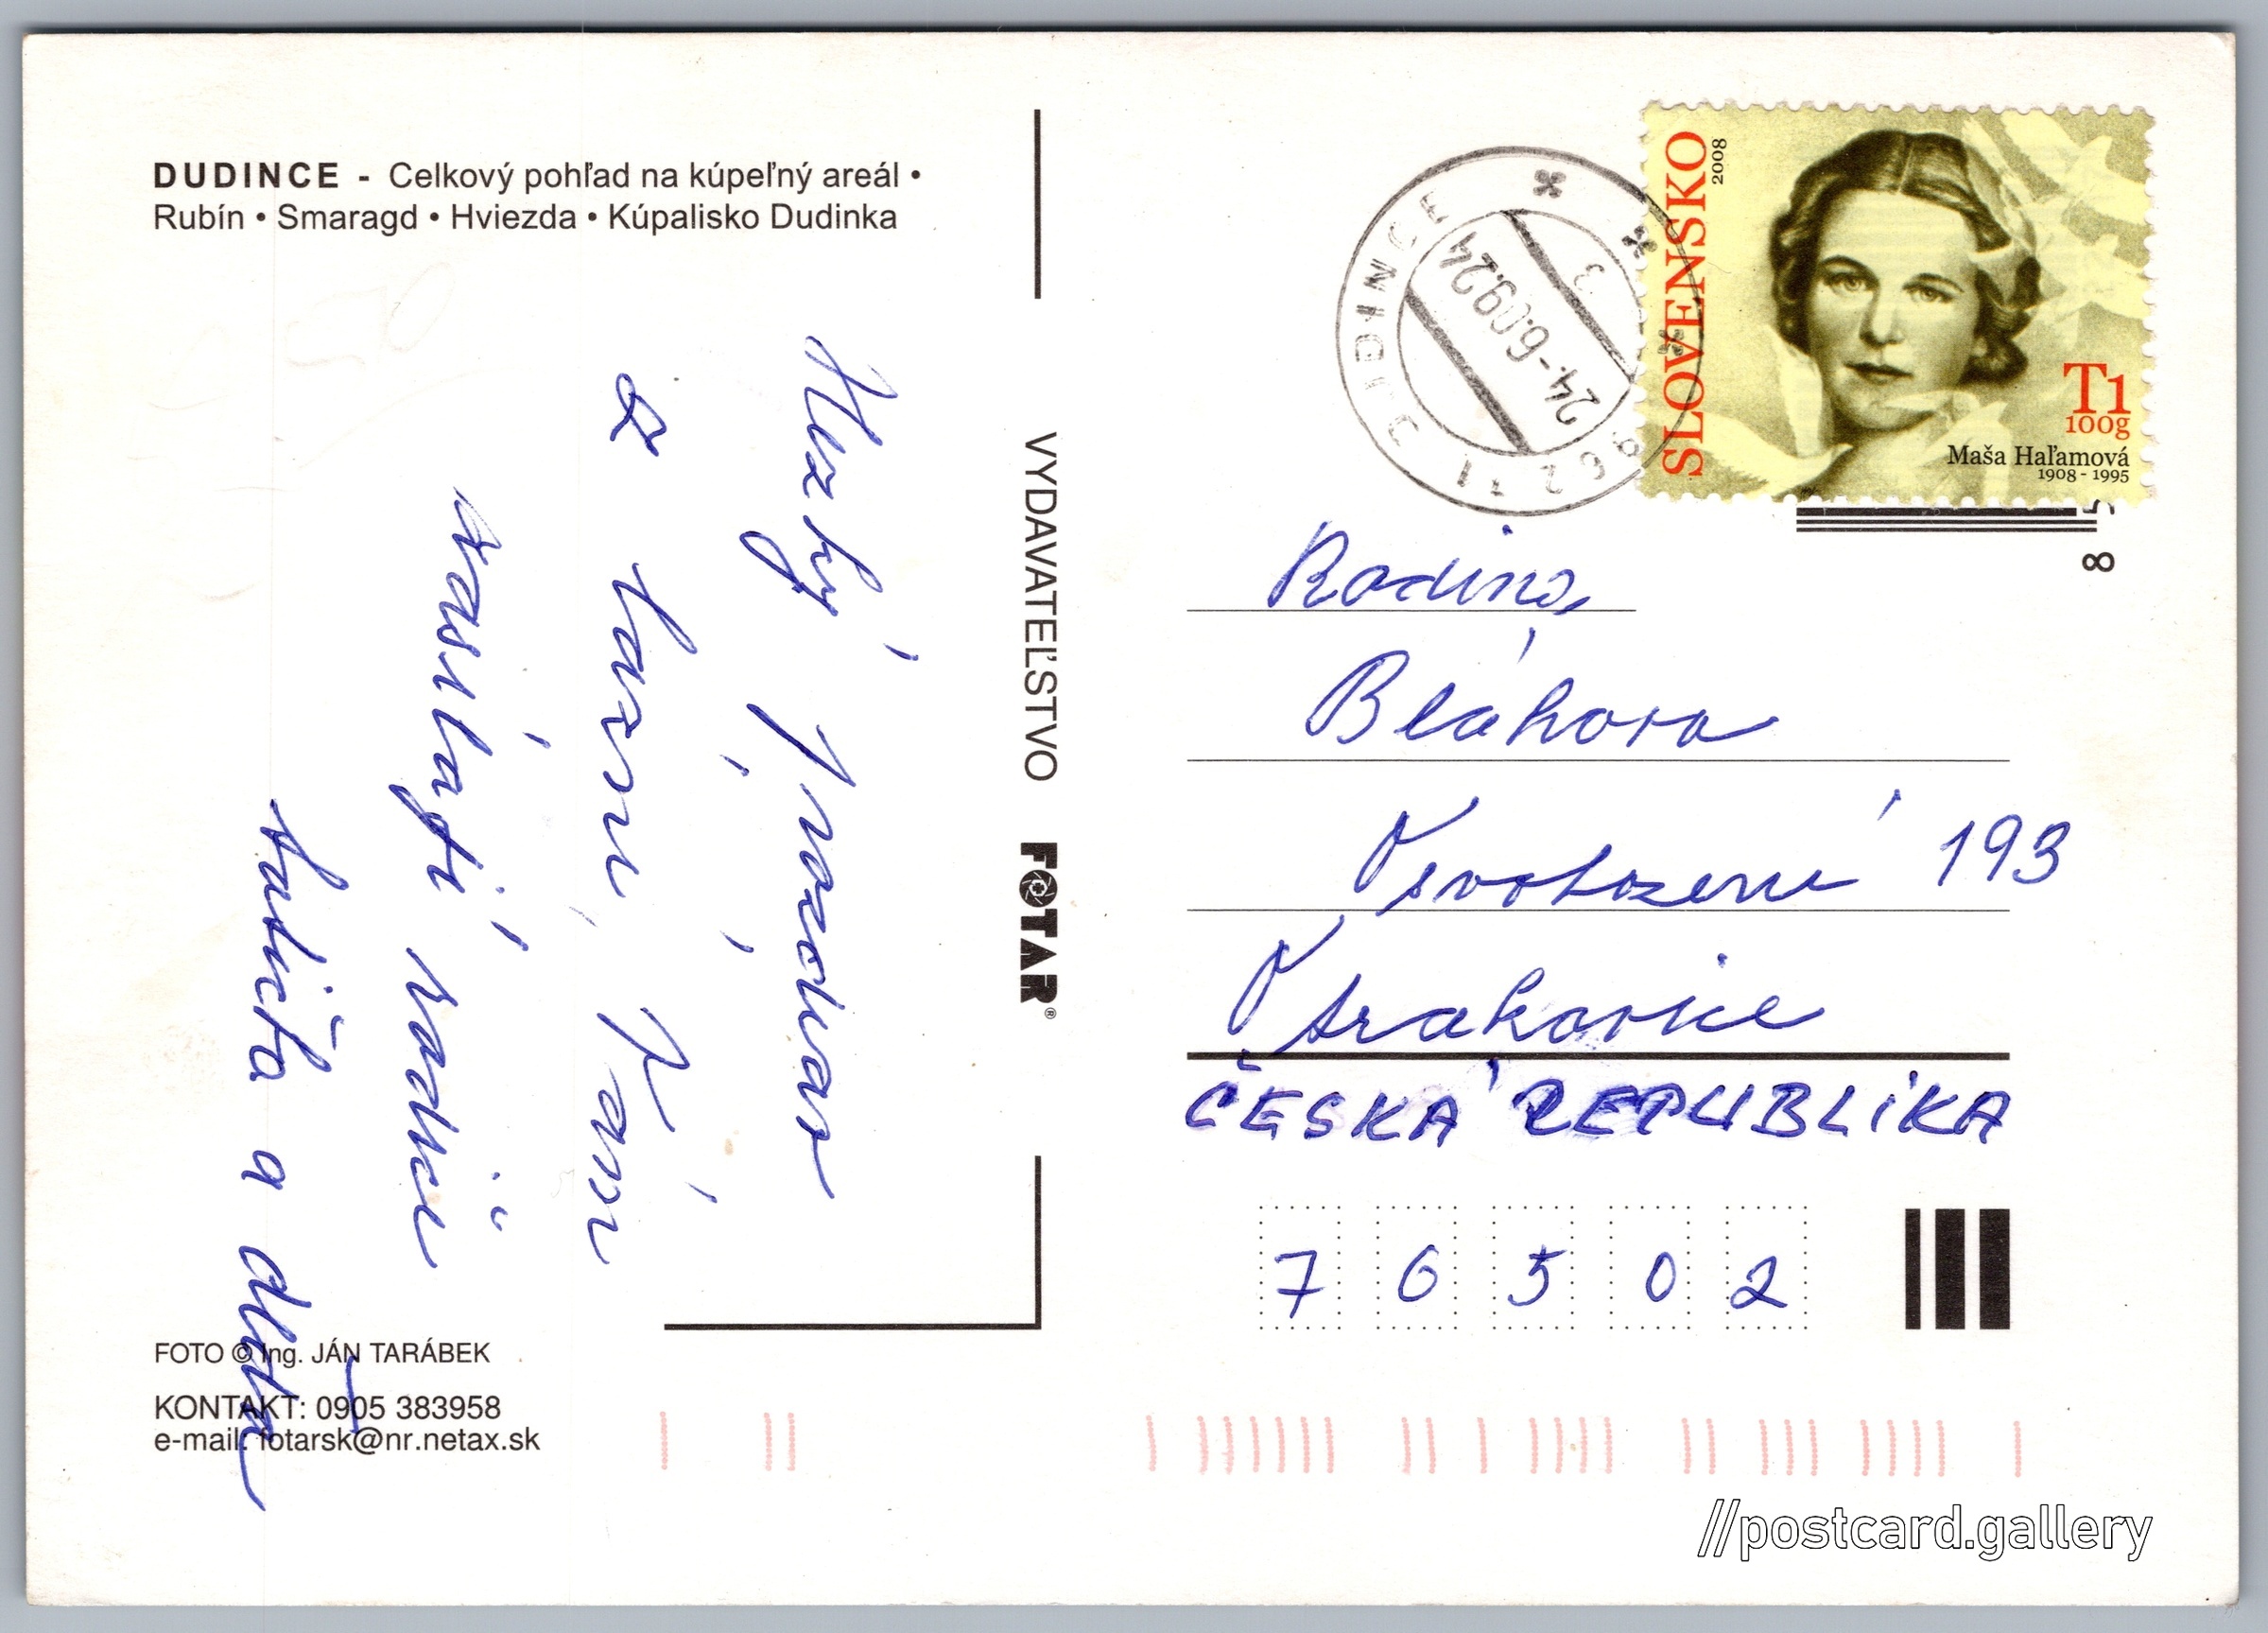 DUDINCE - Celkový pohľad na kúpeľný areál •
Rubín • Smaragd • Hviezda • Kúpalisko Dudinka
Hezký pozdrav
z lázní Vám
zasílají rodiče
babička a děda
FOTO © Ing. JÁN TARÁBEK
KONTAKT: 0905 383958
e-mail: fotarsk@nr.netax.sk
VYDAVATEĽSTVO FOTAR®
DUDINCE 1
962 71
24.-6.09.24
3
SLOVENSKO
2008
T1
100g
Maša Haľamová
1908 - 1995
5
8
Rodina
Bláhova
Osvobození 193
Otrokovice
ČESKÁ REPUBLIKA
76502
//postcard.gallery